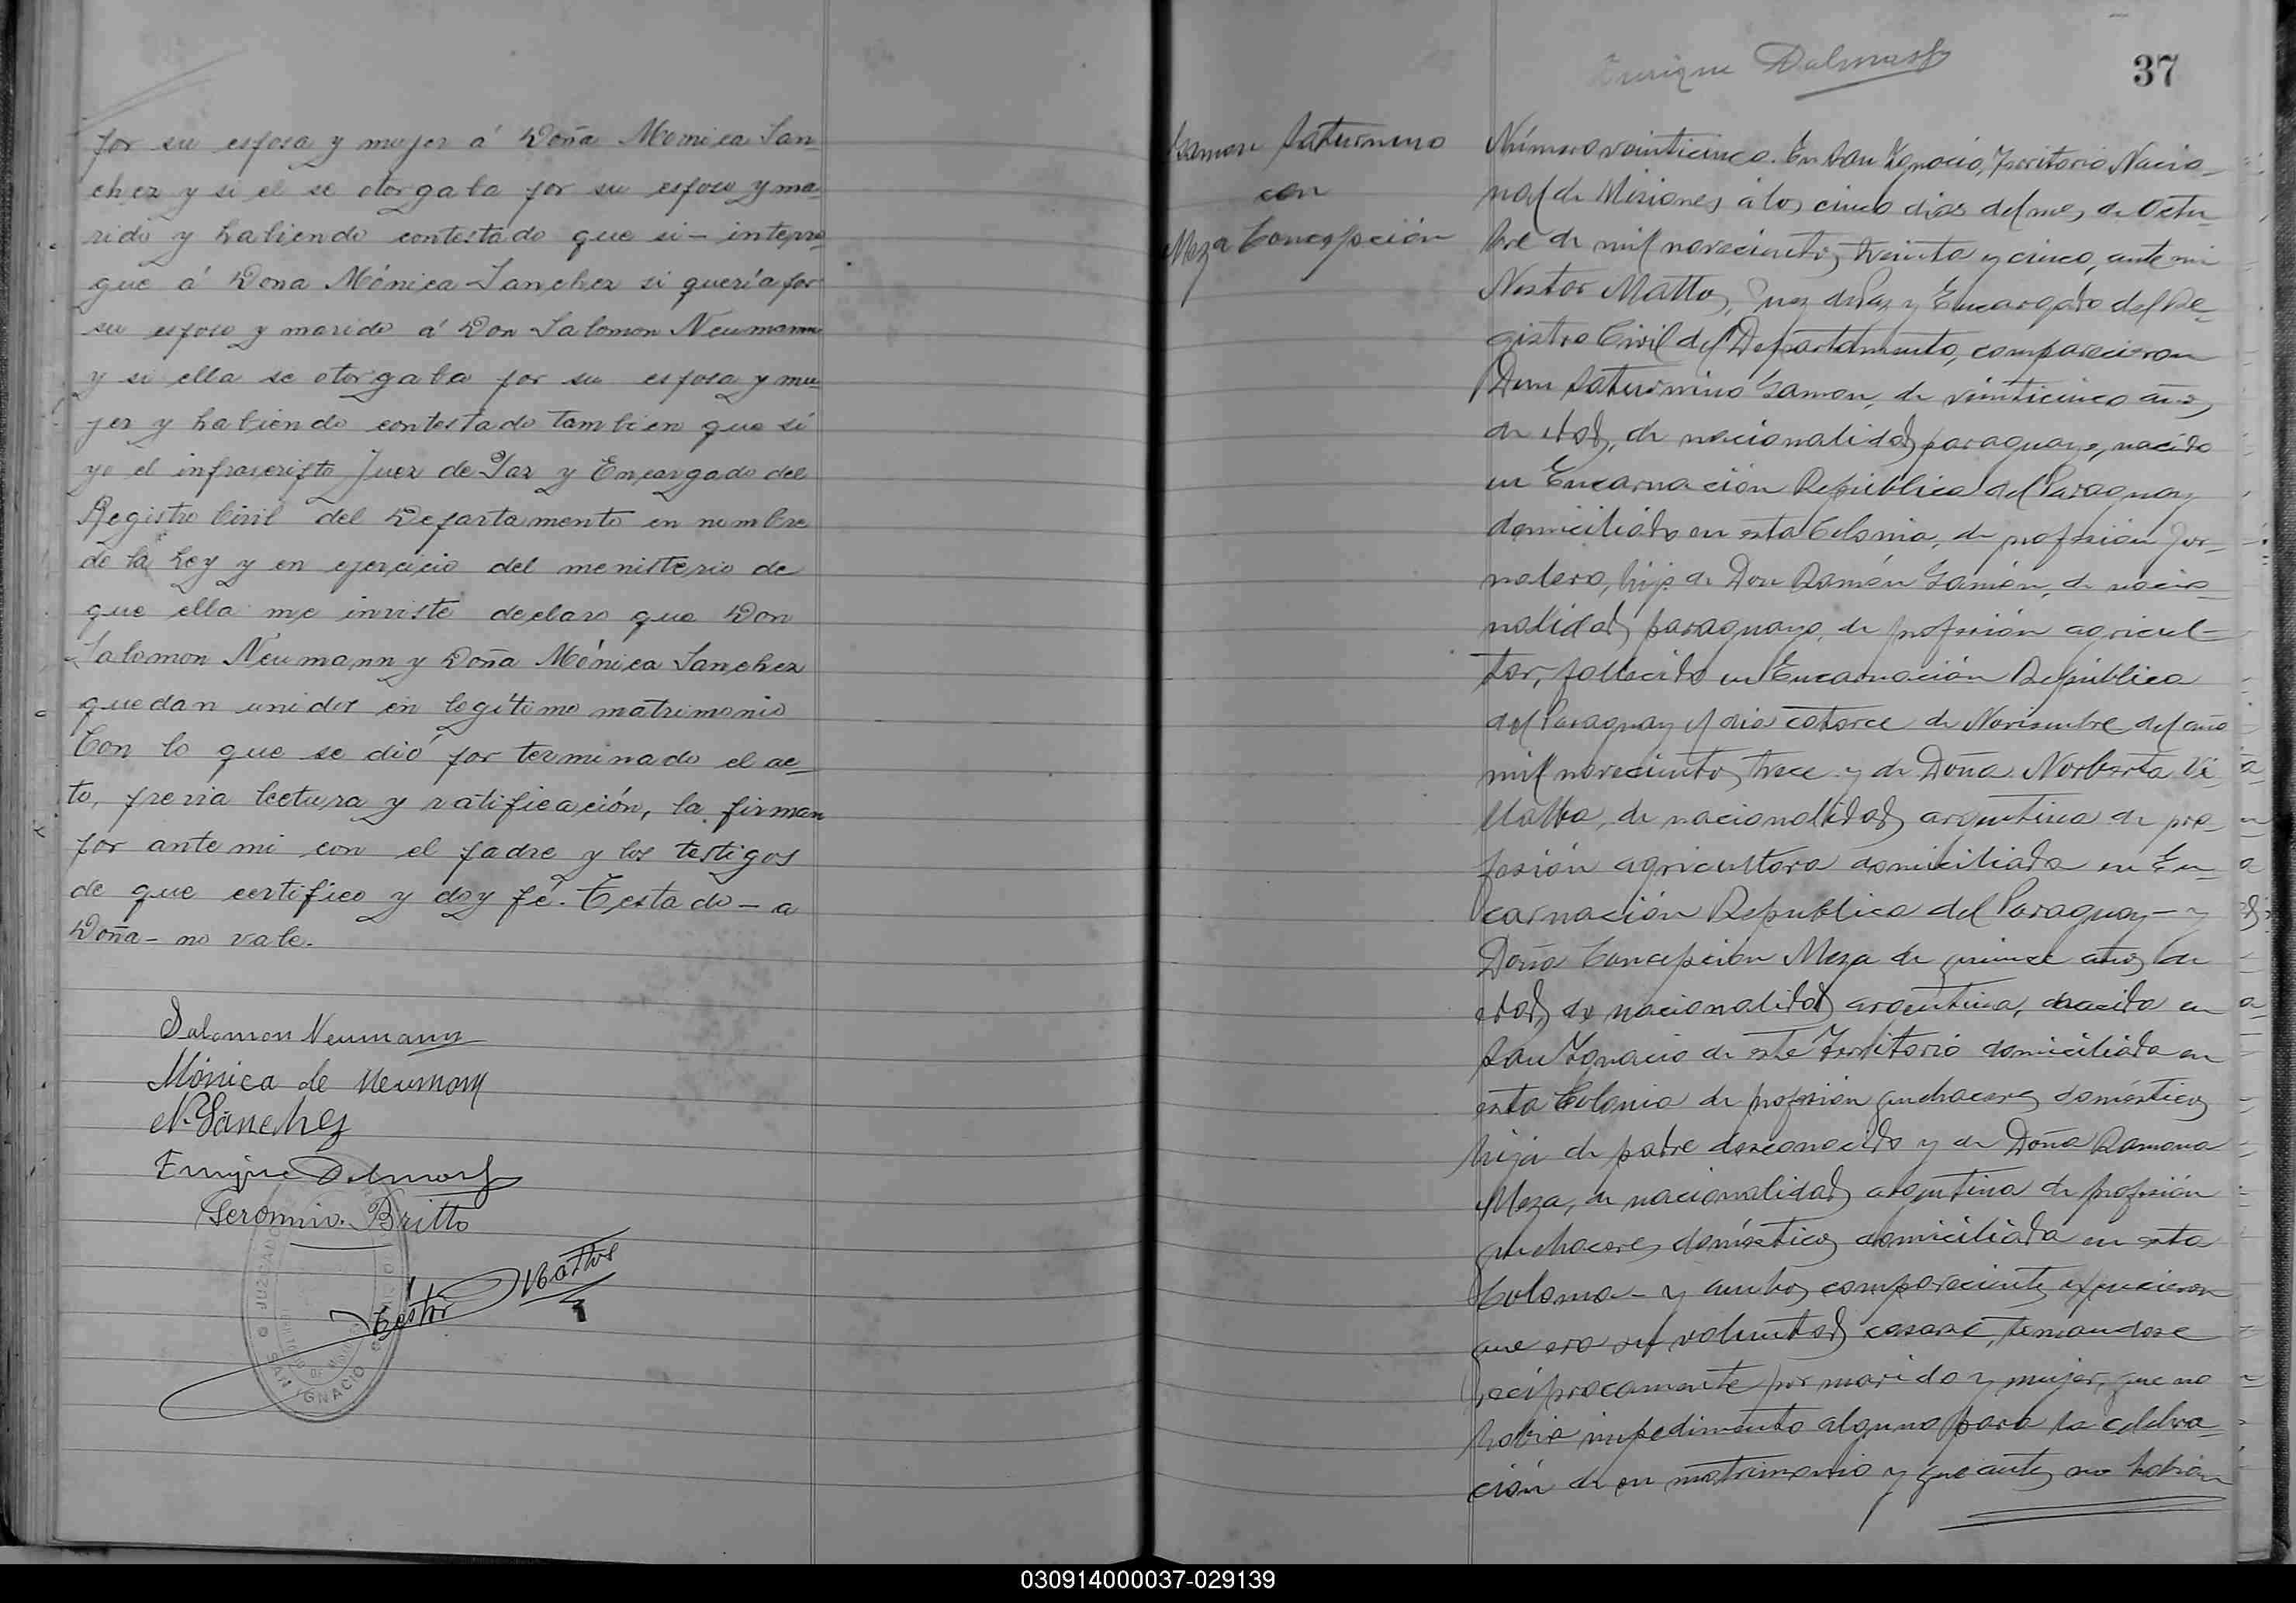 por su esposa y mujer á Doña Monica San-
chez y si el se otorgaba por su esposo y ma-
rido y habiendo contestado que si - interro-
gue á Dona Mónica Sanchez si quería por
su esposo y marido á Don Salomon Neumann
y si ella se otorgaba por su esposa y mu-
jer y habiendo contestado tambien que si
yo el infrascripto Juez de Paz y Encargado del
Registro Civil del Departamento en nombre
de la Ley y en ejercicio del menisterio de
que ella me inviste declaro que Don
Salomon Neumann y Doña Mónica Sanchez
quedan unidos en legítimo matrimonio
Con lo que se dió por terminado el ac-
to, previa lectura y ratificación, la firman
por ante mi con el padre y los testigos
de que certifico y doy fé. Testado - a
Doña - no vale.
Salomon Neumann
Mónica de Neumann
N. Sanchez
Enrique Dalmasf
Geronimo Britto
Nestor Mattos
JUZGADO
SAN IGNACIO
Enrique Dalmasf
37
Gamon Saturnino
con
Meza Concepción
Número veinticinco. En San Ygnacio, Territorio Nacio-
nal de Misiones á los cinco dias del mes de Octu-
bre de mil novecientos treinta y cinco, ante mi
Nestor Mattos, Juez de Paz y Encargado del Re-
gistro Civil del Departamento, comparecieron
Don Saturnino Gamon, de veinticinco años
de edad, de nacionalidad paraguayo, nacido
en Encarnación República del Paraguay
domiciliado en esta Colonia, de profesión jor-
nalero, hijo de Don Ramón Gamón, de nacio-
nalidad paraguayo, de profesión agricul-
tor, fallecido en Encarnación República
del Paraguay el dia catorce de Noviembre del año
mil novecientos trece y de Doña Norberta Vi-
llalba, de nacionalidad argentina de pro-
fesión agricultora domiciliada en En-
carnación Republica del Paraguay - y
Doña Concepción Meza de quince años de
edad, de nacionalidad argentina, nacida en
San Ygnacio de este Territorio domiciliada en
esta Colonia de profesión quehaceres domésticos
hija de padre desconocido y de Doña Ramona
Meza, de nacionalidad argentina de profesión
quehaceres domésticos domiciliada en esta
Colonia - y ambos comparecientes expucieron
que era su voluntad casarse, tomandose
reciprocamente por marido y mujer, que no
habia impedimento alguno para la celebra-
ción de su matrimonio y que antes no habian
030914000037-029139